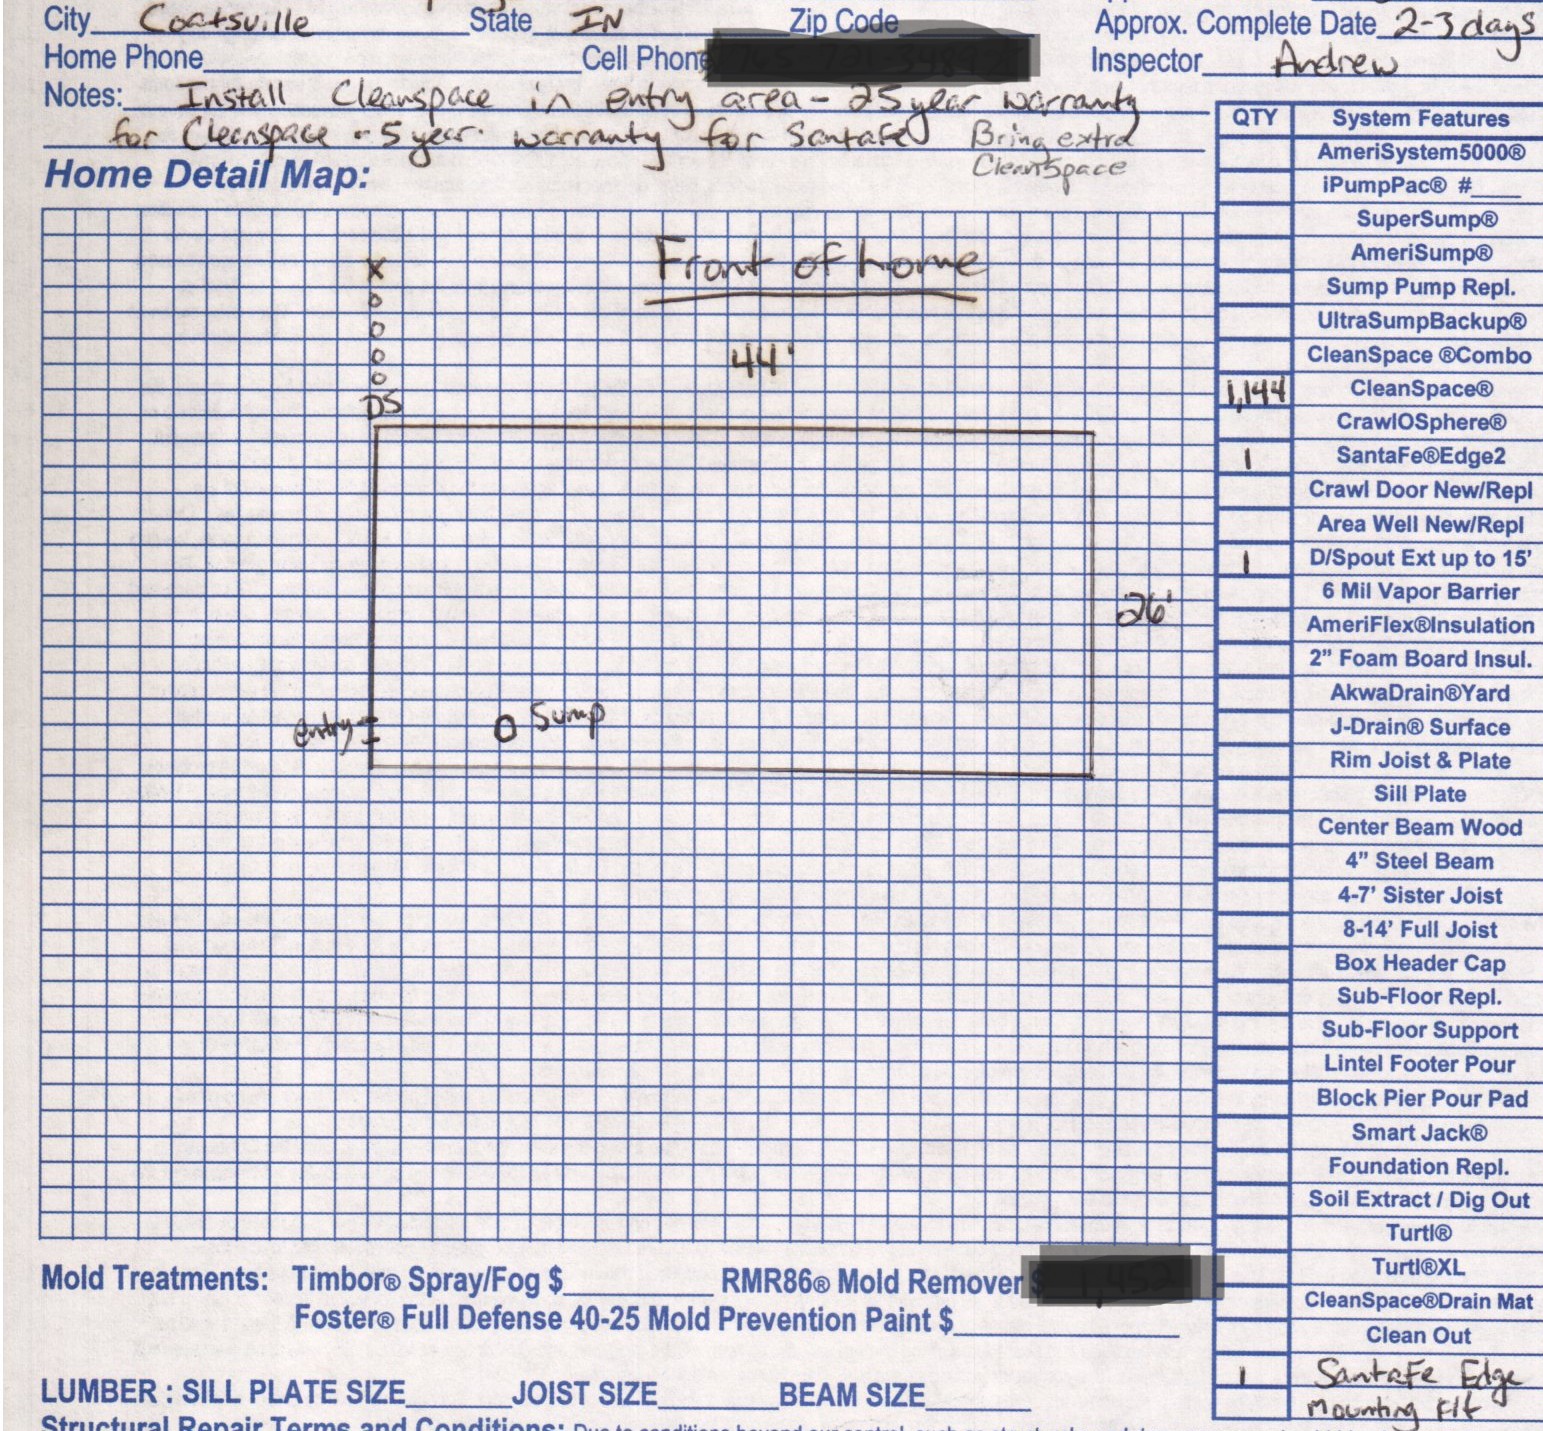 City Coatsville State IN Zip Code Approx. Complete Date 2-3 days
Home Phone Cell Phone Inspector Andrew
Notes: Install Cleanspace in entry area - 25 year warranty
for Cleanspace - 5 year warranty for Santafe Bring extra
CleanSpace
Home Detail Map:
QTY System Features
AmeriSystem5000®
iPumpPac® #___
SuperSump®
AmeriSump®
Sump Pump Repl.
UltraSumpBackup®
CleanSpace ®Combo
1,144 CleanSpace®
CrawlOSphere®
1 SantaFe®Edge2
Crawl Door New/Repl
Area Well New/Repl
1 D/Spout Ext up to 15'
6 Mil Vapor Barrier
AmeriFlex®Insulation
2" Foam Board Insul.
AkwaDrain®Yard
J-Drain® Surface
Rim Joist & Plate
Sill Plate
Center Beam Wood
4" Steel Beam
4-7' Sister Joist
8-14' Full Joist
Box Header Cap
Sub-Floor Repl.
Sub-Floor Support
Lintel Footer Pour
Block Pier Pour Pad
Smart Jack®
Foundation Repl.
Soil Extract / Dig Out
Turtl®
Turtl®XL
CleanSpace®Drain Mat
Clean Out
1 SantaFe Edge
Mounting Kit
Front of home
X
o
o
o
o
DS
44'
26'
entry
Sump
Mold Treatments: Timbor® Spray/Fog $ RMR86® Mold Remover $
Foster® Full Defense 40-25 Mold Prevention Paint $
LUMBER : SILL PLATE SIZE JOIST SIZE BEAM SIZE
Structural Repair Terms and Conditions: